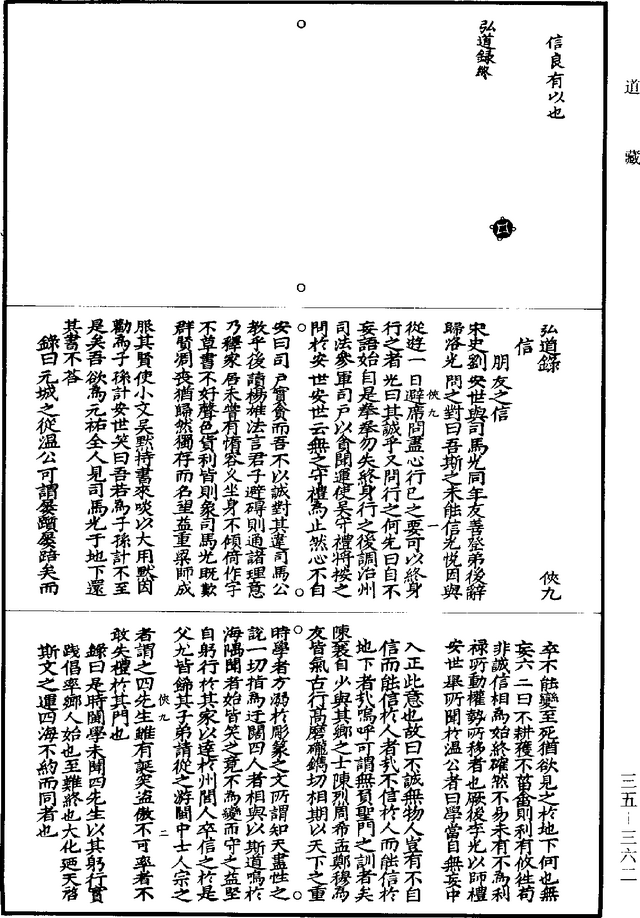 道藏
信良有以也
弘道録終
弘道録
信 俠九
朋友之信
宋史劉安世與司馬光同年友善登第後辭
歸洛光問之對曰吾斯之未能信光悅因與
從遊一日避席問盡心行己之要可以終身
俠九 一
行之者光曰其誠乎又問行之何先曰自不
妄語始自是拳拳勿失終身行之後調洺州
司法參軍司戶以貪聞運使吳守禮將按之
問於安世安世云無之守禮為止然心不自
安曰司戶實貪而吾不以誠對其違司馬公
教乎後讀楊雄法言君子避碍則通諸理意
乃釋家居未嘗有惰容乂坐身不傾倚作字
不草書不好聲色貨利皆則象司馬光既歿
群賢凋喪猶歸然獨存而名望益重梁師成
服其賢使小文吳默持書來啖以大用默因
勸為子孫計安世笑曰吾若為子孫計不至
是矣吾欲為元祐全人見司馬光于地下還
其書不答
錄曰元城之從溫公可謂屢躓屢踣矣而
卒不能變至死猶欲見之於地下何也無
妄六二曰不耕穫不菑畬則利有攸往苟
非誠信相為始終確然不易未有不為利
祿所動權勢所移者也厥後李光以師禮
安世舉所聞於溫公者曰學當自無妄中
入正此意也故曰不誠無物人豈有不自
信而能信於人者哉不信於人而能信於
地下者哉嗚呼可謂無負聖門之訓者矣
陳襄自少與其鄉之士陳烈周希孟鄭穆為
友皆氣古行高磨礲鐫切相期以天下之重
時學者方溺於彫篆之文所謂知天盡性之
說一切指為迂闊四人者相與以斯道鳴於
海隅聞者始皆笑之竟不為變而守之益堅
自躬行於其家以達於州閭人卒信之於是
父兄皆飾其子弟請從之游閩中士人宗之
俠九 二
者謂之四先生雖有誕突盜傲不可率者不
敢失禮於其門也
錄曰是時閩學未聞四先生以其躬行實
踐倡率鄉人始也至難終也大化廼天啓
斯文之運四海不約而同者也
三五－三六二